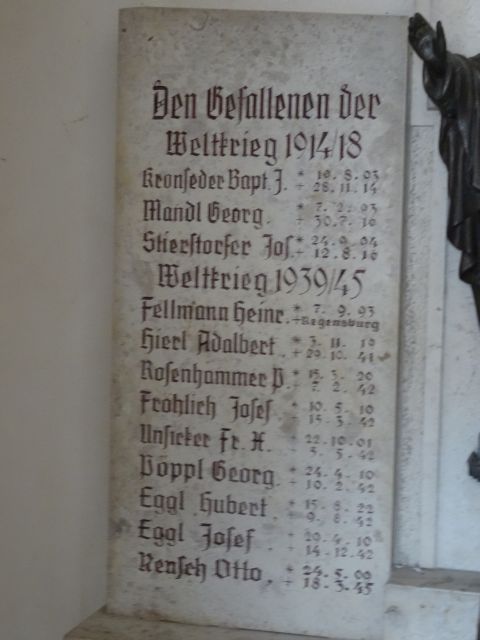 Den Gefallenen der
Weltkrieg 1914/18
Kronseder Bapt. J. * 19. 8. 93
+ 28. 11. 14
Mandl Georg. * 7. 2. 93
+ 30. 7. 16
Stierstorfer Jos. * 24. 9. 94
+ 12. 8. 16
Weltkrieg 1939/45
Fellmann Heinr. * 7. 9. 93
+ Regensburg
Hierl Adalbert. * 3. 11. 19
+ 29. 10. 41
Rosenhammer P. * 15. 3. 20
+ 7. 2. 42
Frohlich Josef * 10. 5. 10
+ 15. 3. 42
Unsicker Fr. X. * 22. 10. 01
+ 3. 5. 42
Pöppl Georg. * 24. 4. 10
+ 10. 2. 42
Eggl Hubert. * 15. 8. 22
+ 9. 8. 42
Eggl Josef. * 29. 4. 10
+ 14. 12. 42
Rensch Otto. * 24. 5. 00
+ 18. 3. 45